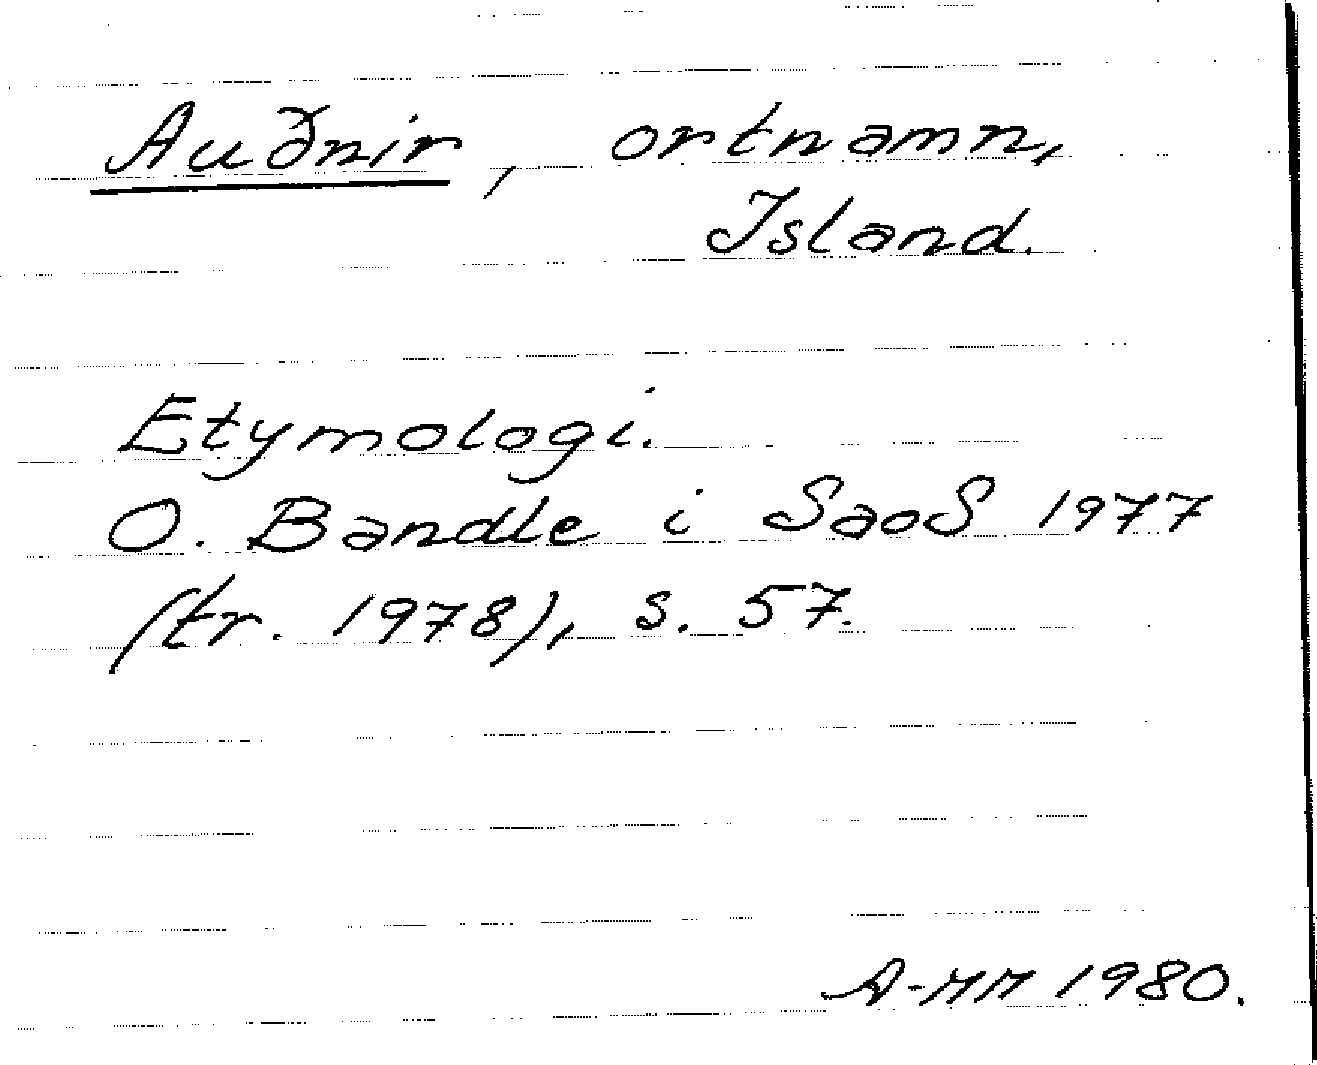 Auðnir, ortnamn,
Island.
Etymologi.
O. Bandle i SaoS 1977
(tr. 1978), s. 57.
A-MM 1980.